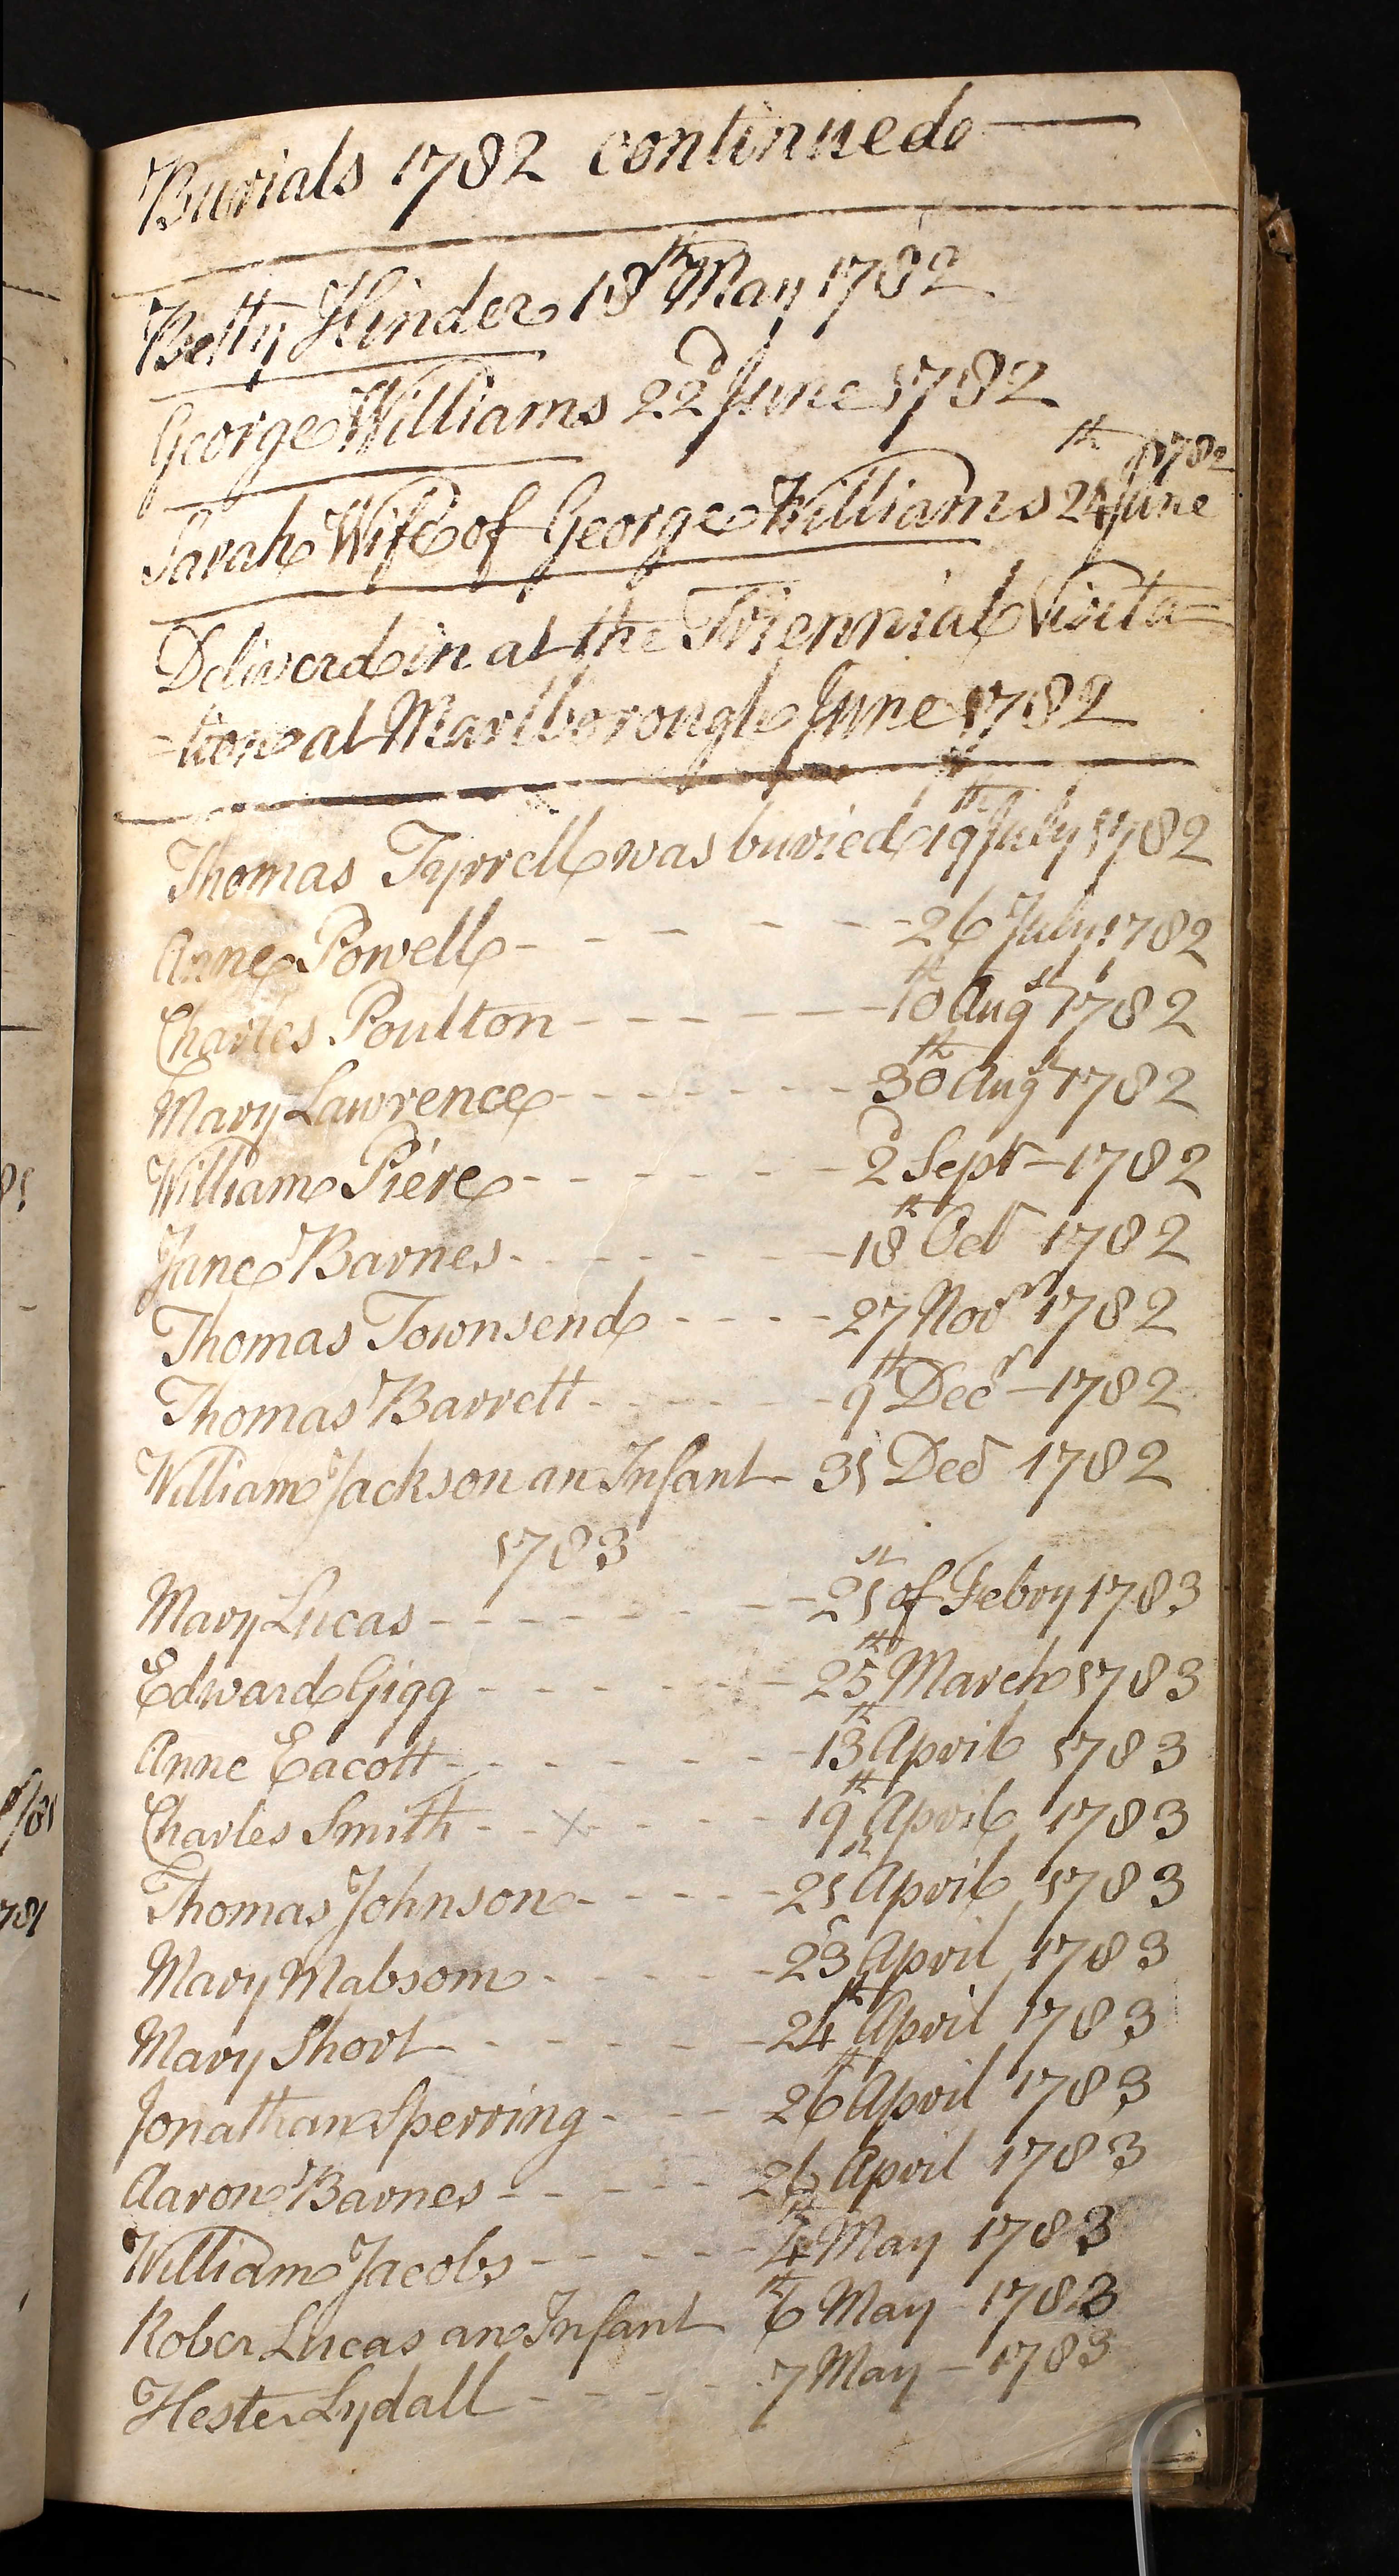 Burials 1782 continued
Betty Hinder 18th May 1782
George Williams 22d June 1782
Sarah Wife of George Williams 24th June 1782
Deliverd in at the Triennial Visita=
=tion at Marlborough June 1782
Thomas Tyrrell was buried 19th July 1782
Anne Powell - - - - - - 26 July 1782
Charles Poulton - - - - - - 10th Augst 1782
Mary Lawrence - - - - - - 30th Augst 1782
William Piére - - - - - - 2d Septr - 1782
Jane Barnes - - - - - - 18th Octr 1782
Thomas Townsend - - - - 27 Novr 1782
Thomas Barrett - - - - - - 9th Decr - 1782
William Jackson an Infant - 31 Decr 1782
1783
Mary Lucas - - - - - - - 21st of Febry 1783
Edward Gigg - - - - - - 25th March 1783
Anne Eacott - - - - - - 13th April 1783
Charles Smith - - x - - - - 19th April 1783
Thomas Johnson - - - - - 21st April 1783
Mary Mabsom - - - - - 23d April 1783
Mary Short - - - - - - 24th April 1783
Jonathan Sperring - - - 26th April 1783
Aaron Barnes - - - - - 26 April 1783
William Jacobs - - - - - 4th May 1783
Rober Lucas an Infant 6th May - 1783
Hester Lydall - - - - - 7 May - 1783